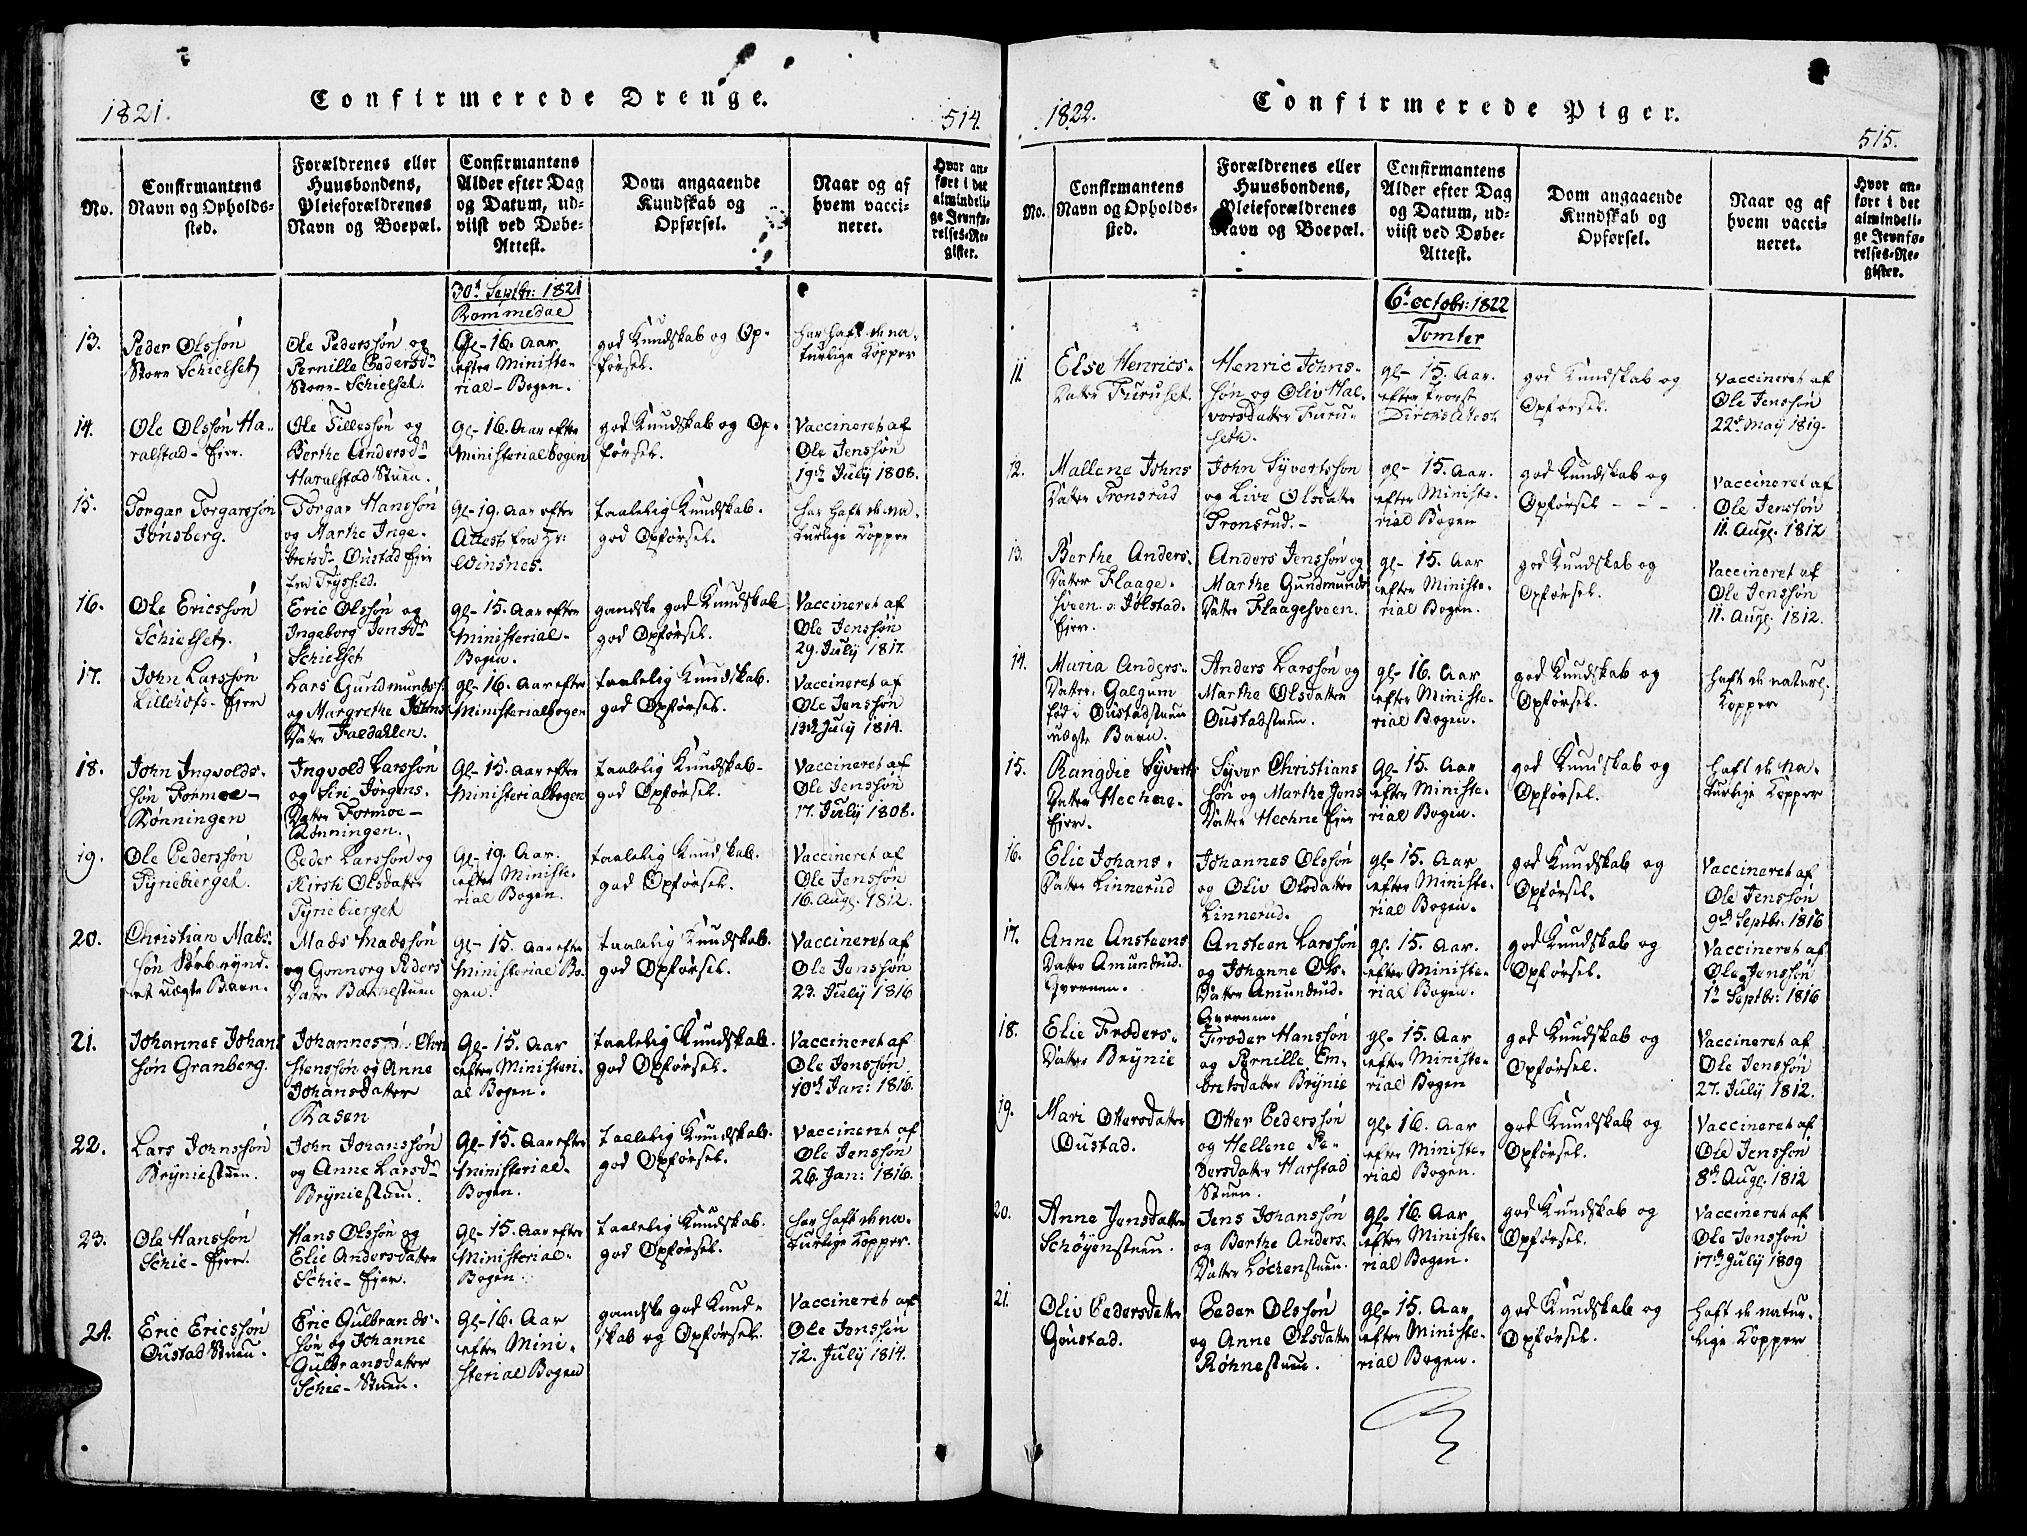 1821.
Confirmerede Drenge.
514.
No.
Confirmantens
Navn og Opholds-
sted.
Forældrenes eller
Huusbondens,
Pleieforældrenes
Navn og Boepæl.
Confirmantens
Alder efter Dag
og Datum, ud-
viist ved Døbe-
Attest.
Dom angaaende
Kundskab og
Opførsel.
Naar og af
hvem vacci-
neret.
Hvor an-
ført i det
almindeli-
ge Jevnfø-
relses-Re-
gister.
30t Septbr: 1821
Rommedal
13.
Peder Olssøn
Store Schielset
Ole Pederssøn og
Pernille Pedersdr
Store-Schielset.
Gl- 16. Aar
efter Ministe-
rial-Bogen.
god Kundskab og Op-
førsel.
har haft de na-
turlige Kopper
14.
Ole Olssøn Ha-
ralstad-Ejer.
Ole Tillessøn og
Berthe Andersdr
Haralstad Stuen.
Gl- 16. Aar efter
Ministerialbogen
god Kundskab og Op-
førsel.
Vaccineret af
Ole Jenssøn
19de July 1808.
15.
Torgar Torgarssøn
Jønsberg.
Torgar Hanssøn
og Marthe Inge-
bretsdr Oustad Ejer
fra Trysild.
Gl- 19. Aar efter
Attest fra Hr:
Winsnes.
taalelig Kundskab.
god Opførsel.
har haft de na-
turlige Kopper
16.
Ole Ericssøn
Schielset.
Eric Olssøn og
Ingeborg Jensdr
Schielset
Gl- 15. Aar efter
Ministerial-
Bogen.
gandske god Kundskab
god Opførsel.
Vaccineret af
Ole Jenssøn
29. July 1817.
17.
John Larssøn
Lillehofs-Ejer
Lars Gundmunds.
og Margrethe Johns
Datter Faldallen.
Gl- 16. Aar efter
Ministerialbogen
taalelig Kundskab.
god Opførsel.
Vaccineret af
Ole Jenssøn
13de July 1814.
18.
John Ingvolds-
søn Formoe-
Rønningen
Ingvold Larssøn
og Siri Jørgens-
Datter Formoe-
Rønningen.
Gl- 15. Aar efter
Ministerialbogen
taalelig Kundskab-
god Opførsel.
Vaccineret af
Ole Jenssøn
17. July 1808.
19.
Ole Pederssøn
Tyrieberget.
Peder Larssøn og
Kirsti Olsdatter
Tyriebierget
Gl- 19. Aar.
efter Ministe-
rial Bogen.
taalelig Kundskab.
god Opførsel.
Vaccineret af
Ole Jenssøn
16. Aug. 1812.
20.
Christian Mads-
et uægte Barn.
Mads Madssøn
og Gonnorg Peders
Gl- 15. Aar efter
Ministerial Bo-
gen.
taalelig Kundskab.
god Opførsel.
Vaccineret af
Ole Jenssøn
23. July 1816
21.
Johannes Johans
søn Granberg.
Johannes Chri
stenssøn og Anne
Johansdatter
Basen
Gl- 15. Aar
efter Ministeri-
al Bogen.
taalelig Kundskab.
god Opførsel.
Vaccineret af
Ole Jenssøn
10de Jan: 1816.
22.
Lars Johnssøn
Bryniestuen.
John Johanssøn
og Anne Larsdr
Bryniestuen.
Gl- 15. Aar efter
Ministerial-
Bogen.
taalelig Kundskab.
god Opførsel.
Vaccineret af
Ole Jenssøn
26. Jan: 1816.
23.
Ole Hanssøn
Schie-Ejer.
Hans Olssøn og
Elie Andersdatter
Schie-Ejer.
Gl- 15. Aar efter
Ministerial-
Bogen.
taalelig Kundskab.
god Opførsel.
har haft de na-
turlige Kopper.
24.
Eric Ericssøn
Oustad Stuen.
Eric Gulbrands-
søn og Johanne
Gulbransdatter
Schie-Stuen.
Gl- 16. Aar
efter Mini-
sterial Bogen
gandske god Kund-
skab og Opførsel.
Vaccineret af
Ole Jenssøn
12. July 1814.
1822.
Confirmerede Piger.
515.
No.
Confirmantens
Navn og Opholds-
sted.
Forældrenes eller
Huusbondens,
Pleieforældrenes
Navn og Boepæl.
Confirmantens
Alder efter Dag
og Datum, ud-
viist ved Døbe-
Attest.
Dom angaaende
Kundskab og
Opførsel.
Naar og af
hvem vacci-
neret.
Hvor an-
ført i det
almindeli-
ge Jevnfø-
relses-Re-
gister.
6t octobr: 1822
Tomter
11.
Else Henrics-
Datter Furuset.
Henric Johns-
søn og Oliv Hal-
vorsdatter Furu-
seth.
gl- 15. Aar.
efter Provst
Dircks Attest
god Kundskab og
Opførsel.
Vaccineret af
Ole Jenssøn
22de May 1819.
12.
Mallene Johns
Datter Fronsrud
John Syvertssøn
og Live Olsdatter
Fronsrud.-
gl- 15. Aar.
efter Ministe-
rial Bogen
god Kundskab og
Opførsel - - -
Vaccineret af
Ole Jenssøn
11. Aug. 1812
13.
Berthe Anders-
Datter Flaage-
sveen o: Jølstad-
Ejer.
Anders Jenssøn og
Marthe Gundmunds
Datter Flaagesveen.
gl- 15. Aar
efter Ministe-
rial Bogen.
god Kundskab og
Opførsel.
Vaccineret af
Ole Jenssøn
11. Aug. 1812.
14.
Maria Anders-
Datter. Galgum
fød i Oustadstuen
uægte Barn.
Anders Larssøn og
Marthe Olsdatter
Oustadstuen.
gl- 16. Aar
efter Ministe-
rial Bogen.
god Kundskab og
Opførsel.
haft de naturl.
Kopper
15.
Rangdie Syverts
Datter Hechne-
Ejer.
Syver Christians
søn og Marthe Jens
Datter Hechne Ejer
gl- 15. Aar
efter Ministe-
rial Bogen.
god Kundskab og
Opførsel.
haft de na-
turlige Kopper
16.
Elie Johans-
Datter Linnerud
Johannes Olssøn
og Oliv Olsdatter
Linnerud.
gl- 15. Aar
efter Ministe-
rial Bogen.
god Kundskab og
Opførsel.
Vaccineret af
Ole Jenssøn
9de Septbr. 1816
17.
Anne Ansteens
Datter Amundrud.
Qvernen.
Ansteen Larssøn
og Johanne Ols-
Datter Amundrud.
Qvernen.
gl. 15. Aar.
efter Ministe-
rial Bogen.
god Kundskab og
Opførsel.
Vaccineret af
Ole Jenssøn
1te Septbr: 1816
18.
Elie Froders-
Datter Brynie
Froder Hanssøn
og Pernille Em-
bretsdatter Brynie
gl- 15. Aar
efter Ministe-
rial Bogen
god Kundskab og
Opførsel.
Vaccineret af
Ole Jenssøn
27. July 1812.
19.
Mari Ottersdatter
Oustad.
Otter Pederssøn
og Hellene Pe-
dersdatter Harstad
Stuen.
gl- 16. Aar
efter Ministe-
rial Bogen.
god Kundskab og
Opførsel.
Vaccineret af
Ole Jenssøn
8de Aug. 1812
20.
Anne Jensdatter
Schøyenstuen.
Jens Johanssøn
og Berthe Anders-
Datter Løchenstuen.
gl- 16. Aar
efter Ministe-
rial Bogen.
god Kundskab og
Opførsel.
Vaccineret af
Ole Jenssøn
17de July 1809
21.
Oliv Pedersdatter
Goustad.
Peder Olssøn
og Anne Olsdatter
Røhnestuen.
gl- 15. Aar
efter Ministe-
rial Bogen.
god Kundskab og
Opførsel.
haft de natur-
lige Kopper